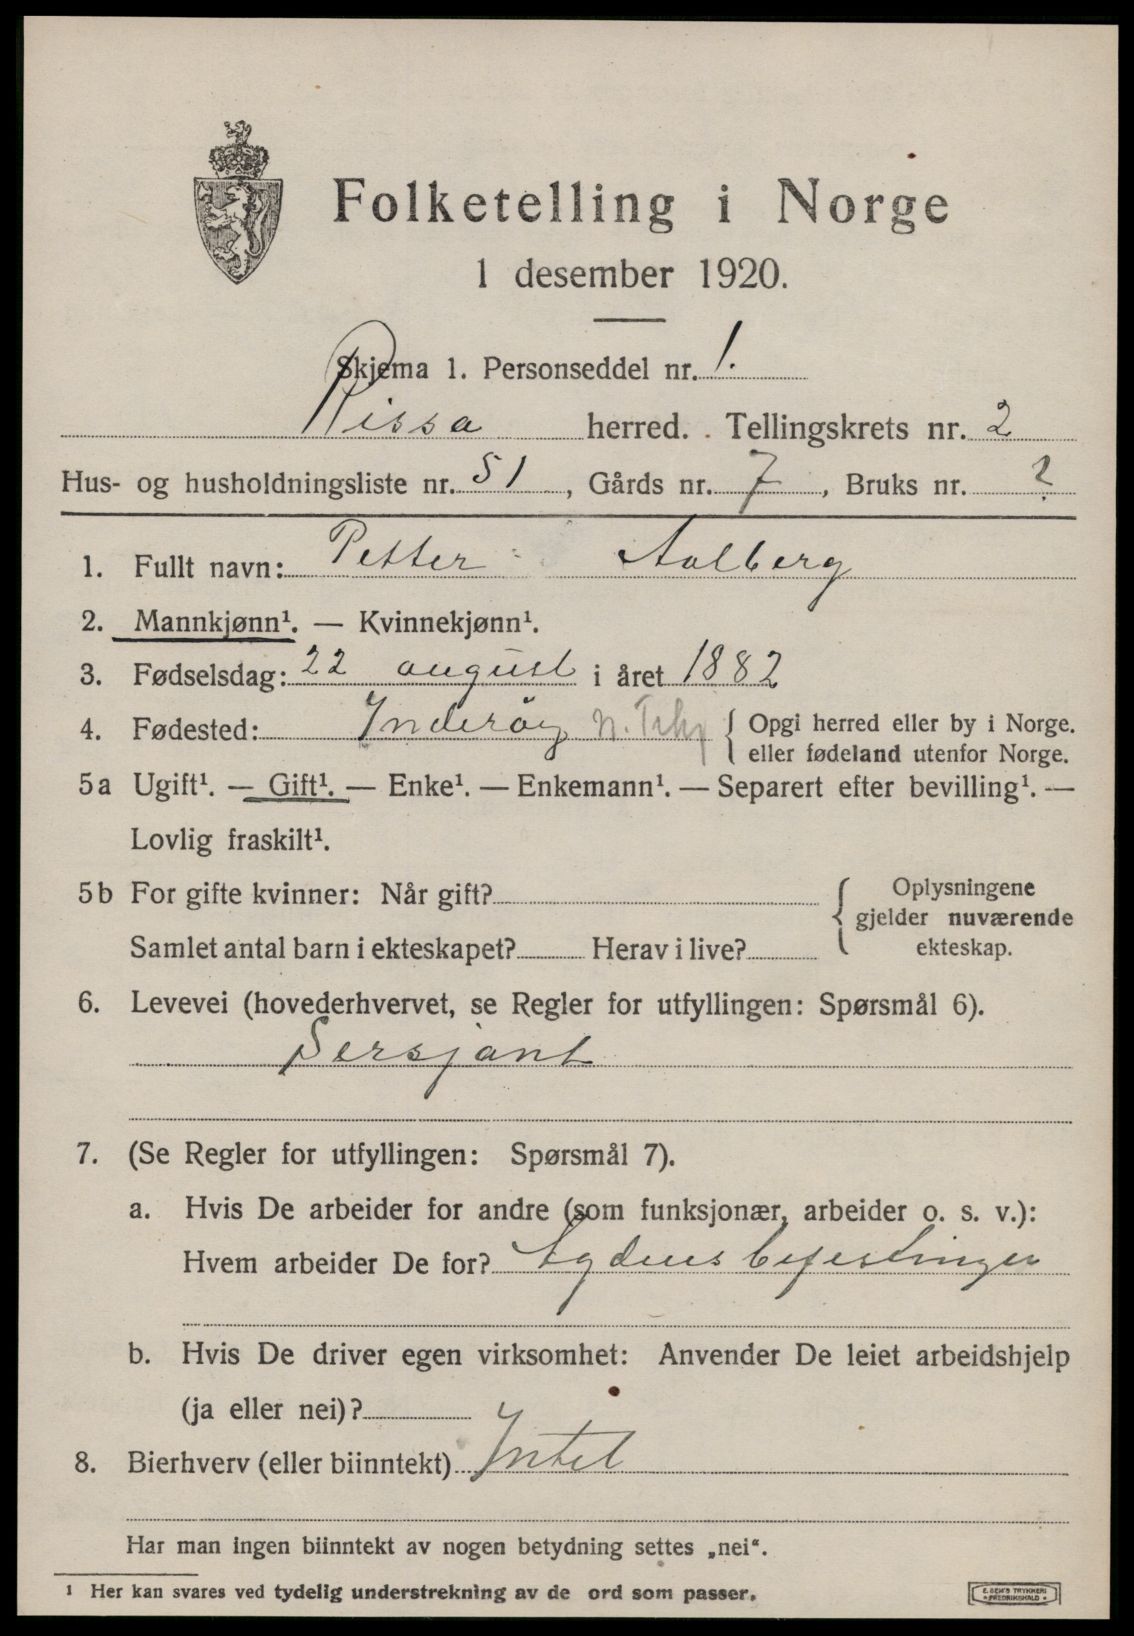 Folketelling i Norge
1 desember 1920.
Skjema 1. Personseddel nr. 1.
Rissa herred. Tellingskrets nr. 2
Hus- og husholdningsliste nr. 51, Gårds nr. 7, Bruks nr. ?
1. Fullt navn: Petter Aalberg
2. Mannkjønn¹. — Kvinnekjønn¹.
3. Fødselsdag: 22 august i året 1882
4. Fødested: Inderøy N. Trhj { Opgi herred eller by i Norge.
eller fødeland utenfor Norge.
5a Ugift¹. — Gift¹. — Enke¹. — Enkemann¹. — Separert efter bevilling¹. —
Lovlig fraskilt¹.
5b For gifte kvinner: Når gift? { Oplysningene
gjelder nuværende
Samlet antal barn i ekteskapet? Herav i live? ekteskap.
6. Levevei (hovederhvervet, se Regler for utfyllingen: Spørsmål 6).
Sersjant
7. (Se Regler for utfyllingen: Spørsmål 7).
a. Hvis De arbeider for andre (som funksjonær, arbeider o. s. v.):
Hvem arbeider De for? Agdenes befestninger
b. Hvis De driver egen virksomhet: Anvender De leiet arbeidshjelp
(ja eller nei)?
8. Bierhverv (eller biinntekt) Intet
Har man ingen biinntekt av nogen betydning settes „nei“.
¹ Her kan svares ved tydelig understrekning av de ord som passer.
E. SEM'S TRYKKERI
FREDRIKSHALD